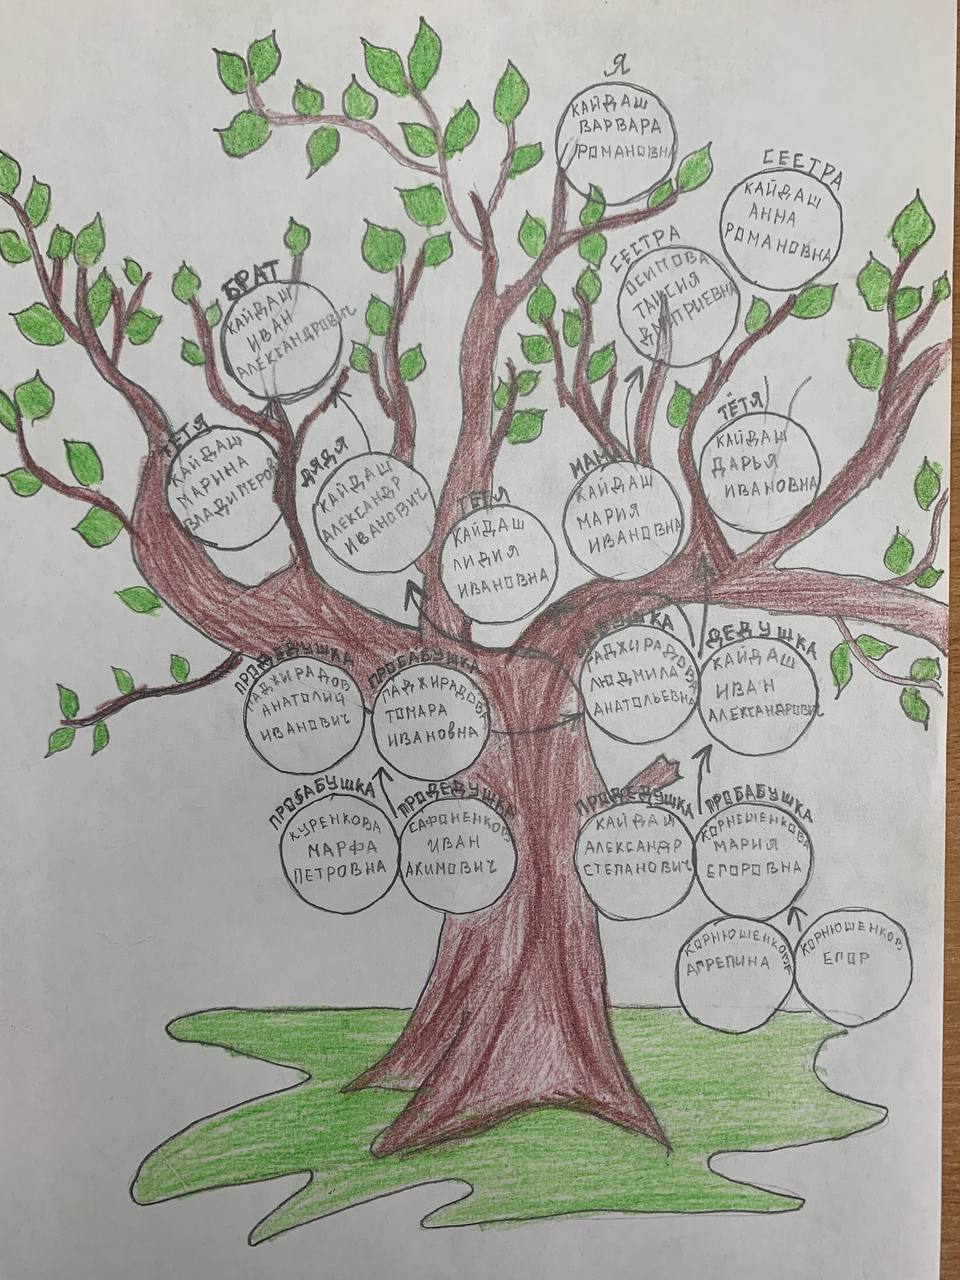 Я
КАЙДАШ
ВАРВАРА
РОМАНОВНА
СЕСТРА
КАЙДАШ
АННА
РОМАНОВНА
СЕСТРА
ОСИПОВА
ТАИСИЯ
ДМИТРИЕВНА
БРАТ
КАЙДАШ
ИВАН
АЛЕКСАНДРОВИЧ
ТЁТЯ
КАЙДАШ
МАРИНА
ВЛАДИМЕРОВ
ДЯДЯ
КАЙДАШ
АЛЕКСАНДР
ИВАНОВИЧ
ТЁТЯ
КАЙДАШ
ЛИДИЯ
ИВАНОВНА
МАМА
КАЙДАШ
МАРИЯ
ИВАНОВНА
ТЁТЯ
КАЙДАШ
ДАРЬЯ
ИВАНОВНА
ПРОДЕДУШКА
ГАДЖИРАДОВ
АНАТОЛИЙ
ИВАНОВИЧ
ПРОБАБУШКА
ГАДЖИРАДОВА
ТОМАРА
ИВАНОВНА
БАБУШКА
ГАДЖИРАДОВА
ЛЮДМИЛА
АНАТОЛЬЕВНА
ДЕДУШКА
КАЙДАШ
ИВАН
АЛЕКСАНДРОВИЧ
ПРОБАБУШКА
КУРЕНКОВА
МАРФА
ПЕТРОВНА
ПРОДЕДУШКА
САФОНЕНКОВ
ИВАН
АКИМОВИЧ
ПРОДЕДУШКА
КАЙДАШ
АЛЕКСАНДР
СТЕПАНОВИЧ
ПРОБАБУШКА
КОРНЕШЕНКОВА
МАРИЯ
ЕГОРОВНА
КОРНЮШЕНКОВА
АГРЕПИНА
КОРНЮШЕНКОВ
ЕГОР